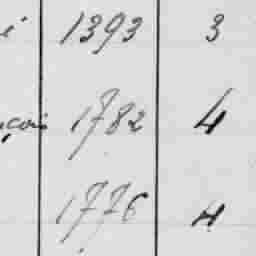 i 1393 3
çois 1782 4
1776 4